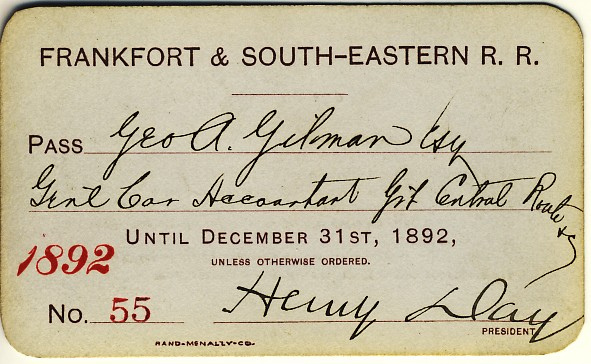 FRANKFORT & SOUTH-EASTERN R. R.
PASS Geo A. Gilman Esq
Gen'l Car Accountant Gt Central Route
UNTIL DECEMBER 31ST, 1892,
1892
UNLESS OTHERWISE ORDERED.
No. 55 Henry Day
PRESIDENT
RAND-MCNALLY-CO.